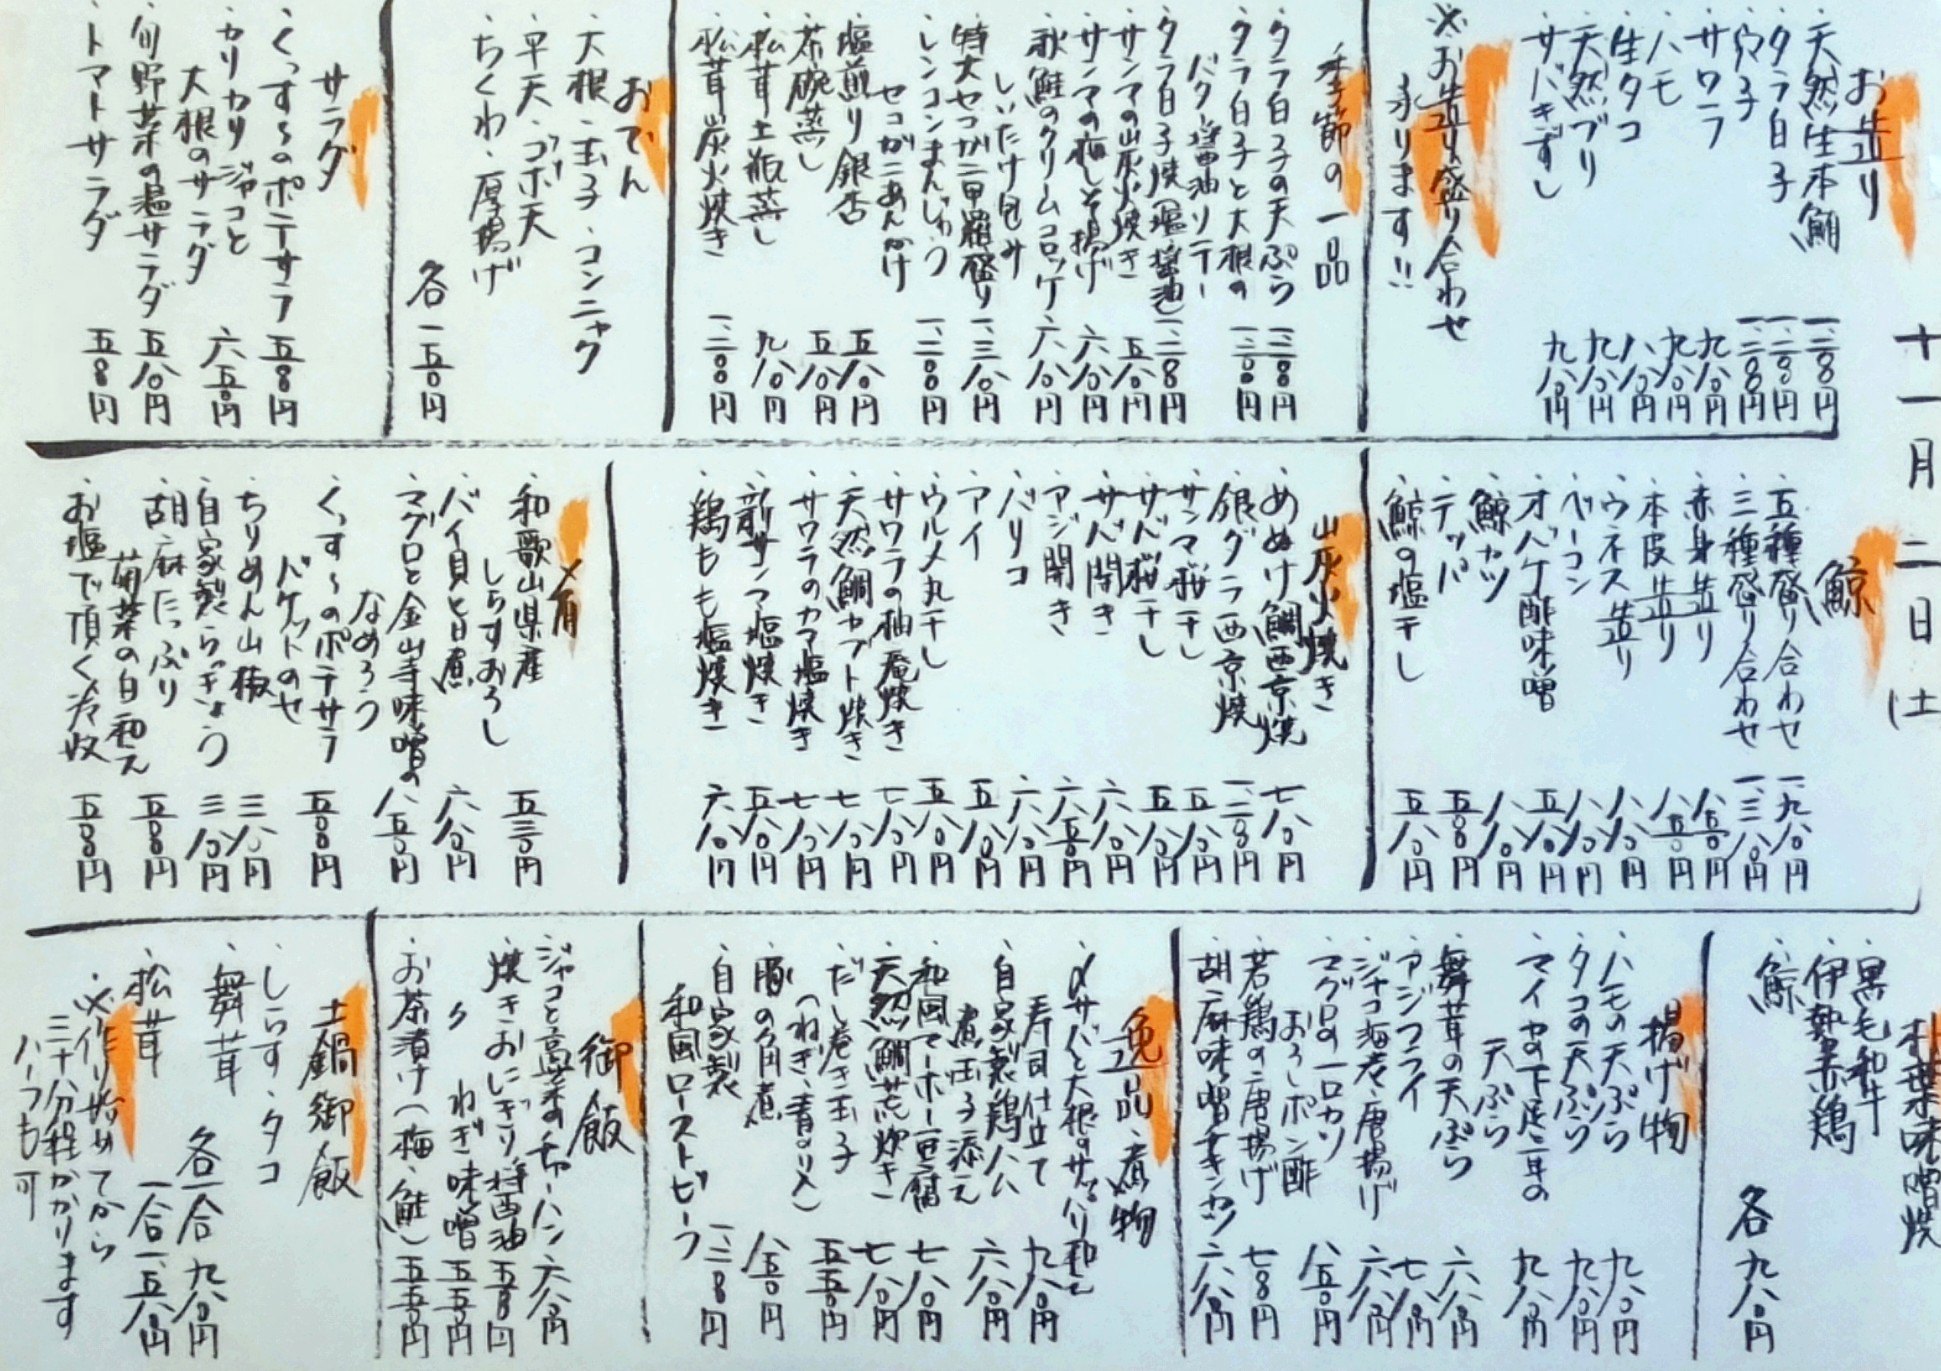 十一月二日(土
お造り
・天然生本鮪 一、二八〇円
・タラ白子 一、二〇〇円
・穴子 一、二〇〇円
・サワラ 九八〇円
・ハモ 九八〇円
・生タコ 八八〇円
・天然ブリ 九八〇円
・サバきずし 九八〇円
※お造り盛り合わせ
承ります!!
季節の一品
・タラ白子の天ぷら 一、二〇〇円
・タラ白子と大根の
バター醤油ソテー 一、二〇〇円
・タラ白子焼 塩 醤油 一、二〇〇円
・サンマの山灰火焼き 五八〇円
・サンマの梅しそ揚げ 六八〇円
・秋鮭のクリームコロッケ 六八〇円
しいたけ包み
・特大セコガニ甲羅盛り 一、三八〇円
・レンコンまんじゅう
セコガニあんかけ 一、二〇〇円
・塩煎り銀杏 五八〇円
・茶碗蒸し 五八〇円
・松茸土瓶蒸し 九八〇円
・松茸炭火焼き 一、二〇〇円
おでん
・大根・玉子・コンニャク
・平天・ゴボ天
・ちくわ・厚揚げ
各一五〇円
サラダ
・くっす〜のポテサラ 五〇〇円
・カリカリジャコと
大根のサラダ 六五〇円
・旬野菜の温サラダ 五八〇円
・トマトサラダ 五〇〇円
鯨
・五種盛り合わせ 一、九八〇円
・三種盛り合わせ 一、三八〇円
・赤身造り 八五〇円
・本皮造り 八五〇円
・ウネス造り 八八〇円
・ベーコン 八八〇円
・オバケ酢味噌 五八〇円
・鯨カツ 八八〇円
・テッパ 五〇〇円
・鯨の塩干し 五八〇円
山灰火焼き
・めぬけ鯛西京焼 七八〇円
・銀ダラ西京焼 一、二〇〇円
・サンマ桜干し 五八〇円
・サバ桜干し 五八〇円
・サバ開き 六八〇円
・アジ開き 六五〇円
・バリコ 六八〇円
・アイ 五八〇円
・ウルメ丸干し 五八〇円
・サワラの柚庵焼き 七八〇円
・天然鯛カブト焼き 七八〇円
・サワラのカマ塩焼き 七八〇円
・新サンマ塩焼き 五八〇円
・鶏もも塩焼き 六八〇円
・和歌山県産
しらすおろし 五三〇円
・バイ貝と旨煮 六八〇円
・マグロと金山寺味噌の
なめろう 八五〇円
・くっす〜のポテサラ
バケットのせ 五〇〇円
・ちりめん山椒 三八〇円
・自家製らっきょう 三八〇円
・胡麻たっぷり
菊菜の白和え 五〇〇円
・お塩で頂く冷奴 五〇〇円
朴葉味噌焼
・黒毛和牛
・伊勢赤鶏
・鯨
各九八〇円
揚げ物
・ハモの天ぷら 九八〇円
・タコの天ぷら 九八〇円
・マイカの下足二年の
天ぷら 九八〇円
・舞茸の天ぷら 六八〇円
・アジフライ 七八〇円
・ジャコ海老唐揚げ 六八〇円
・マグロの一口カツ
おろしポン酢 八五〇円
・若鶏の唐揚げ 七〇〇円
・胡麻味噌チキンカツ 六八〇円
逸品・煮物
・〆サバと大根のサッパリ和え
寿司仕立て 九八〇円
・自家製鶏ハム
煮玉子添え 六八〇円
・和風マーボー豆腐 七八〇円
・天然鯛荒炊き 七八〇円
・だし巻き玉子
(ねぎ、青のり入) 五五〇円
・豚の角煮 八五〇円
・自家製
和風ローストビーフ 一、二〇〇円
御飯
・ジャコと高菜のチャーハン 六八〇円
・焼きおにぎり 醤油 五五〇円
・〃 ねぎ味噌 五五〇円
・お茶漬け(梅・鮭) 五五〇円
土鍋御飯
・しらす・タコ
・舞茸 各一合 九八〇円
・松茸 一合 一、五八〇円
※作り始めてから
三十分程かかります
ハーフも可